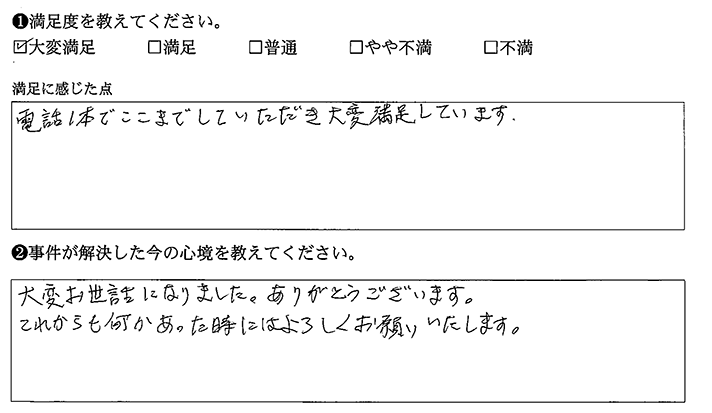 ❶満足度を教えてください。
☑大変満足 □満足 □普通 □やや不満 □不満
満足に感じた点
電話1本でここまでしていただき大変満足しています.
❷事件が解決した今の心境を教えてください。
大変お世話になりました。ありがとうございます。
これからも何かあった時にはよろしくお願いいたします。